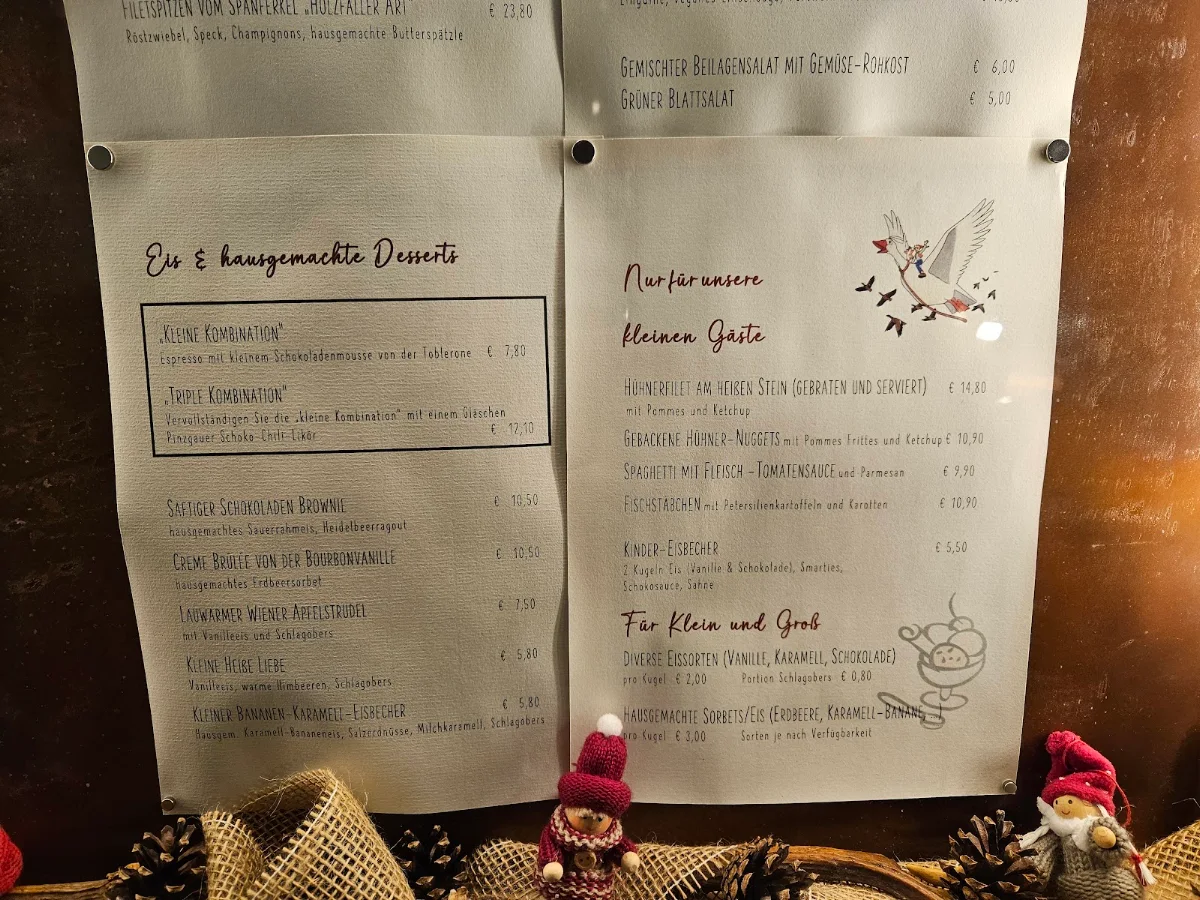 FILETSPITZEN VOM SPANFERKEL „HOLZFÄLLER ART" € 23,80
Röstzwiebel, Speck, Champignons, hausgemachte Butterspätzle
Eis & hausgemachte Desserts
„KLEINE KOMBINATION"
Espresso mit kleinem Schokoladenmousse von der Toblerone € 7,80
„TRIPLE KOMBINATION"
Vervollständigen Sie die „kleine Kombination" mit einem Gläschen
Pinzgauer Schoko-Chili Likör € 12,10
SAFTIGER SCHOKOLADEN BROWNIE € 10,50
hausgemachtes Sauerrahmeis, Heidelbeerragout
CREME BRÛLÉE VON DER BOURBONVANILLE € 10,50
hausgemachtes Erdbeersorbet
LAUWARMER WIENER APFELSTRUDEL € 7,50
mit Vanilleeis und Schlagobers
KLEINE HEIßE LIEBE € 5,80
Vanilleeis, warme Himbeeren, Schlagobers
KLEINER BANANEN-KARAMELL-EISBECHER € 5,80
Hausgem. Karamell-Bananeneis, Salzerdnüsse, Milchkaramell, Schlagobers
GEMISCHTER BEILAGENSALAT MIT GEMÜSE-ROHKOST € 6,00
GRÜNER BLATTSALAT € 5,00
Nur für unsere
kleinen Gäste
HÜHNERFILET AM HEIßEN STEIN (GEBRATEN UND SERVIERT) € 14,80
mit Pommes und Ketchup
GEBACKENE HÜHNER-NUGGETS mit Pommes Frittes und Ketchup € 10,90
SPAGHETTI MIT FLEISCH -TOMATENSAUCE und Parmesan € 9,90
FISCHSTÄBCHEN mit Petersilienkartoffeln und Karotten € 10,90
KINDER-EISBECHER € 5,50
2 Kugeln Eis (Vanille & Schokolade), Smarties,
Schokosauce, Sahne
Für Klein und Groß
DIVERSE EISSORTEN (VANILLE, KARAMELL, SCHOKOLADE)
pro Kugel € 2,00 Portion Schlagobers € 0,80
HAUSGEMACHTE SORBETS/EIS (ERDBEERE, KARAMELL-BANANE, ...)
pro Kugel € 3,00 Sorten je nach Verfügbarkeit